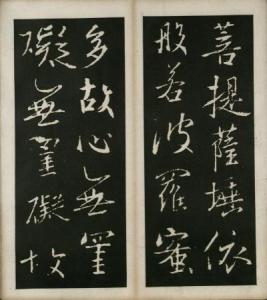 菩提薩埵依
般若波羅蜜
多故心無罣
礙無罣礙故